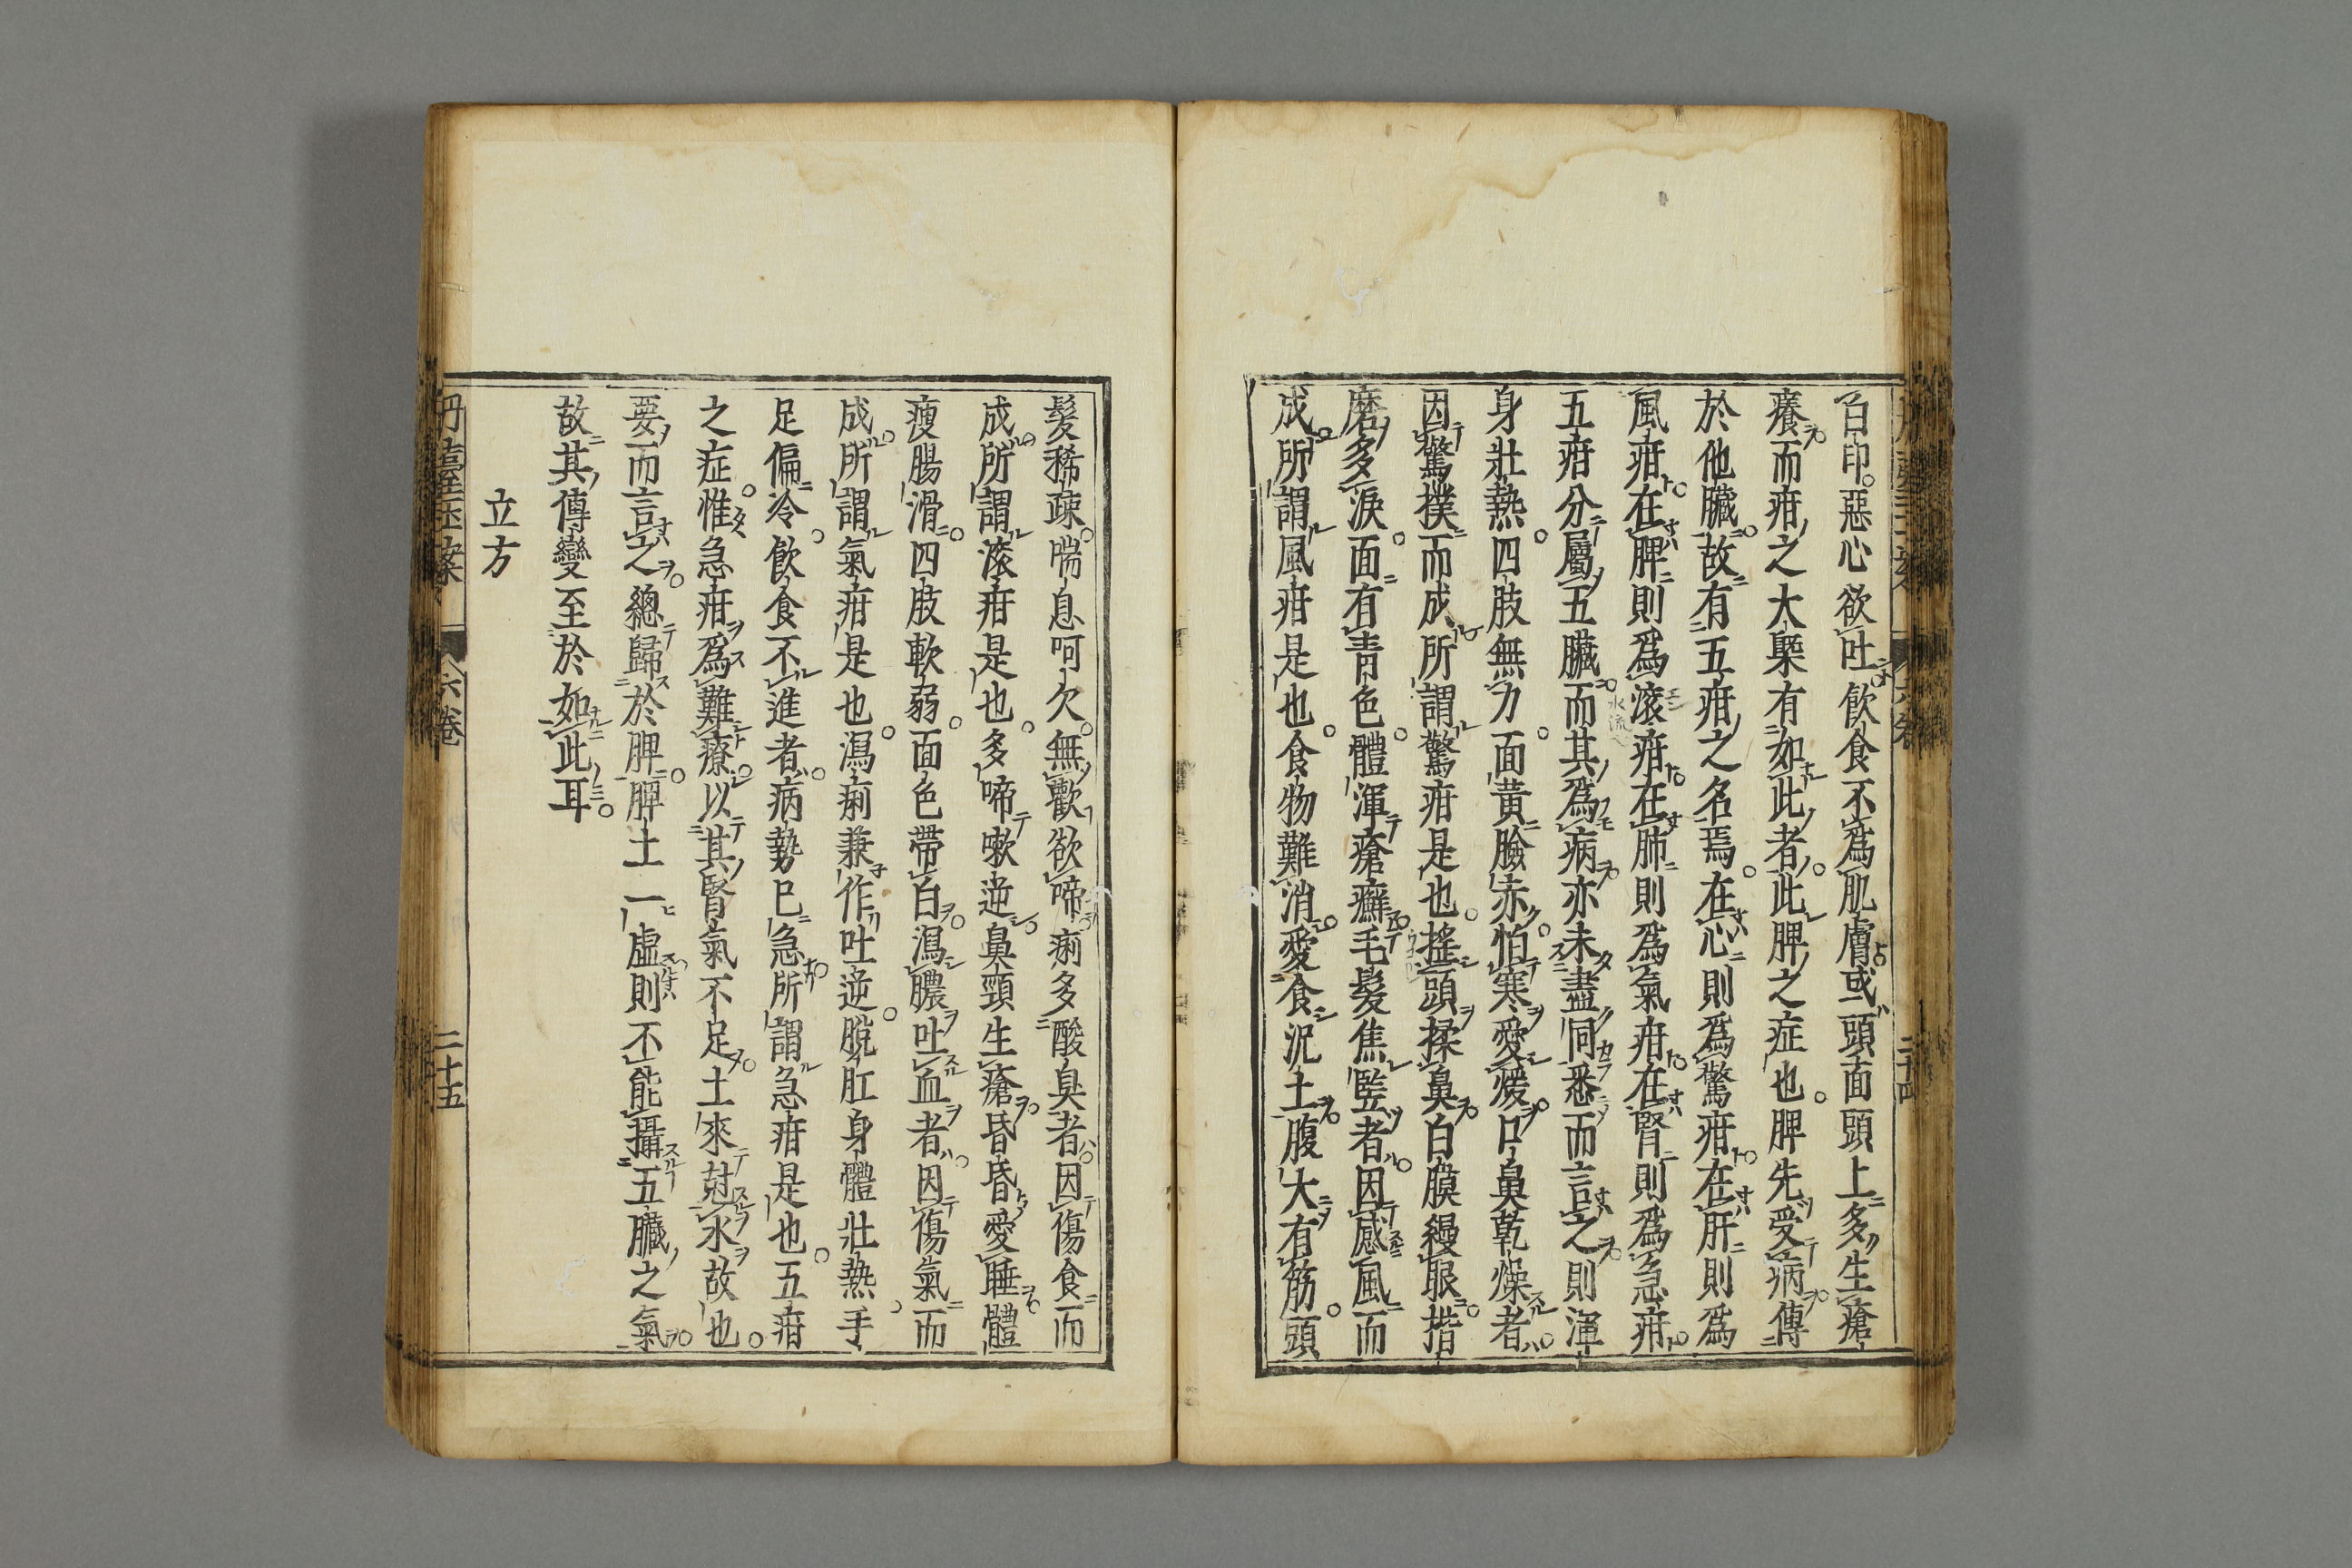 白印惡心欲吐飲食不為肌膚或頭面頭上多生瘡
癢而疳之大槩有如此者此脾之症也脾先受病傳
於他臟故有五疳之名焉在心則為驚疳在肝則為
風疳在脾則為滚疳在肺則為氣疳在腎則為急疳
五疳分屬五臟而其為病亦未盡同悉而言之則渾
身壯熱四肢無力面黃臉赤怕寒愛煖口鼻乾燥者
因驚撲而成所謂驚疳是也搖頭揉鼻白膜縵眼指
磨多淚面有青色體渾瘡癬毛髮焦竪者因感風而
成所謂風疳是也食物難消愛食泥土腹大有筋頭
髮稀疎喘息呵欠無歡欲啼痢多酸臭者因傷食而
成所謂滚疳是也多啼嗽逆鼻頸生瘡昏昏愛睡體
瘦腸滑四肢軟弱面色帶白瀉膿吐血者因傷氣而
成所謂氣疳是也瀉痢兼作吐逆脫肛身體壯熱手
足偏冷飲食不進者病勢已急所謂急疳是也五疳
之症惟急疳為難療以其腎氣不足土來尅水故也
要而言之總歸於脾脾土一虛則不能攝五臟之氣
故其傳變至於如此耳
立方
丹臺玉案
六卷
二十五